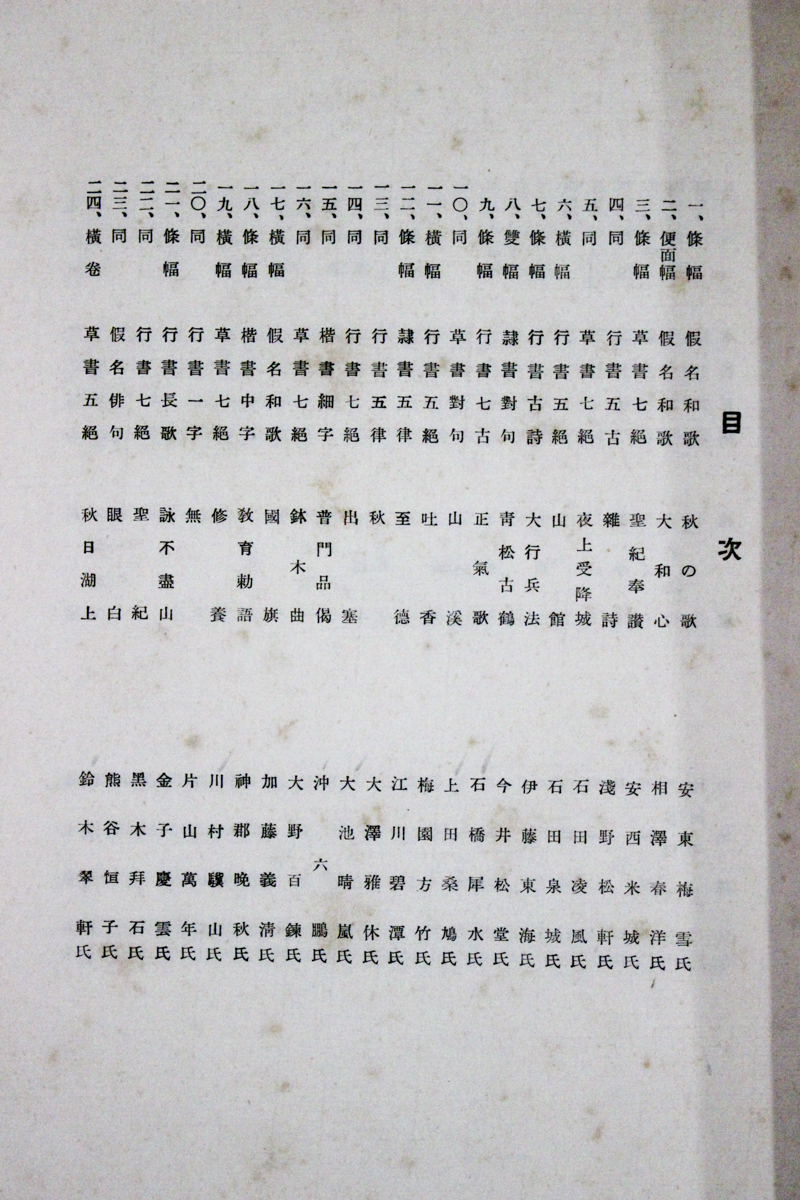 目次
一、條幅 假名和歌 秋の歌 安東梅雪氏
二、便面幅 假名和歌 大和心 相澤春洋氏
三、條幅 草書七絕 聖紀奉讚 安西米城氏
四、同 行書五古 雜詩 淺野松軒氏
五、同 草書七絕 夜上受降城 石田凌風氏
六、橫幅 行書五絕 山館 石田泉城氏
七、條幅 行書古詩 大行兵法 伊藤東海氏
八、雙幅 隷書對句 靑松古鶴 今井松堂氏
九、條幅 行書七古 正氣歌 石橋犀水氏
一〇、同 草書對句 山溪 上田桑鳩氏
一一、橫幅 行書五絕 吐香 梅園方竹氏
一二、條幅 隷書五律 至德 江川碧潭氏
一三、同 行書五律 秋 大澤雅休氏
一四、同 行書七絕 出塞 大池晴嵐氏
一五、同 楷書細字 普門品偈 沖六鵬氏
一六、同 草書七絕 鉢木曲 大野百鍊氏
一七、橫幅 假名和歌 國旗 加藤義淸氏
一八、條幅 楷書中字 敎育勅語 神郡晚秋氏
一九、橫幅 草書七絕 修養 川村驥山氏
二〇、同 行書一字 無 片山萬年氏
二一、條幅 行書長歌 詠不盡山 金子慶雲氏
二二、同 行書七絕 聖紀 黑木拜石氏
二三、同 假名俳句 眼白 熊谷恒子氏
二四、橫卷 草書五絕 秋日湖上 鈴木翠軒氏